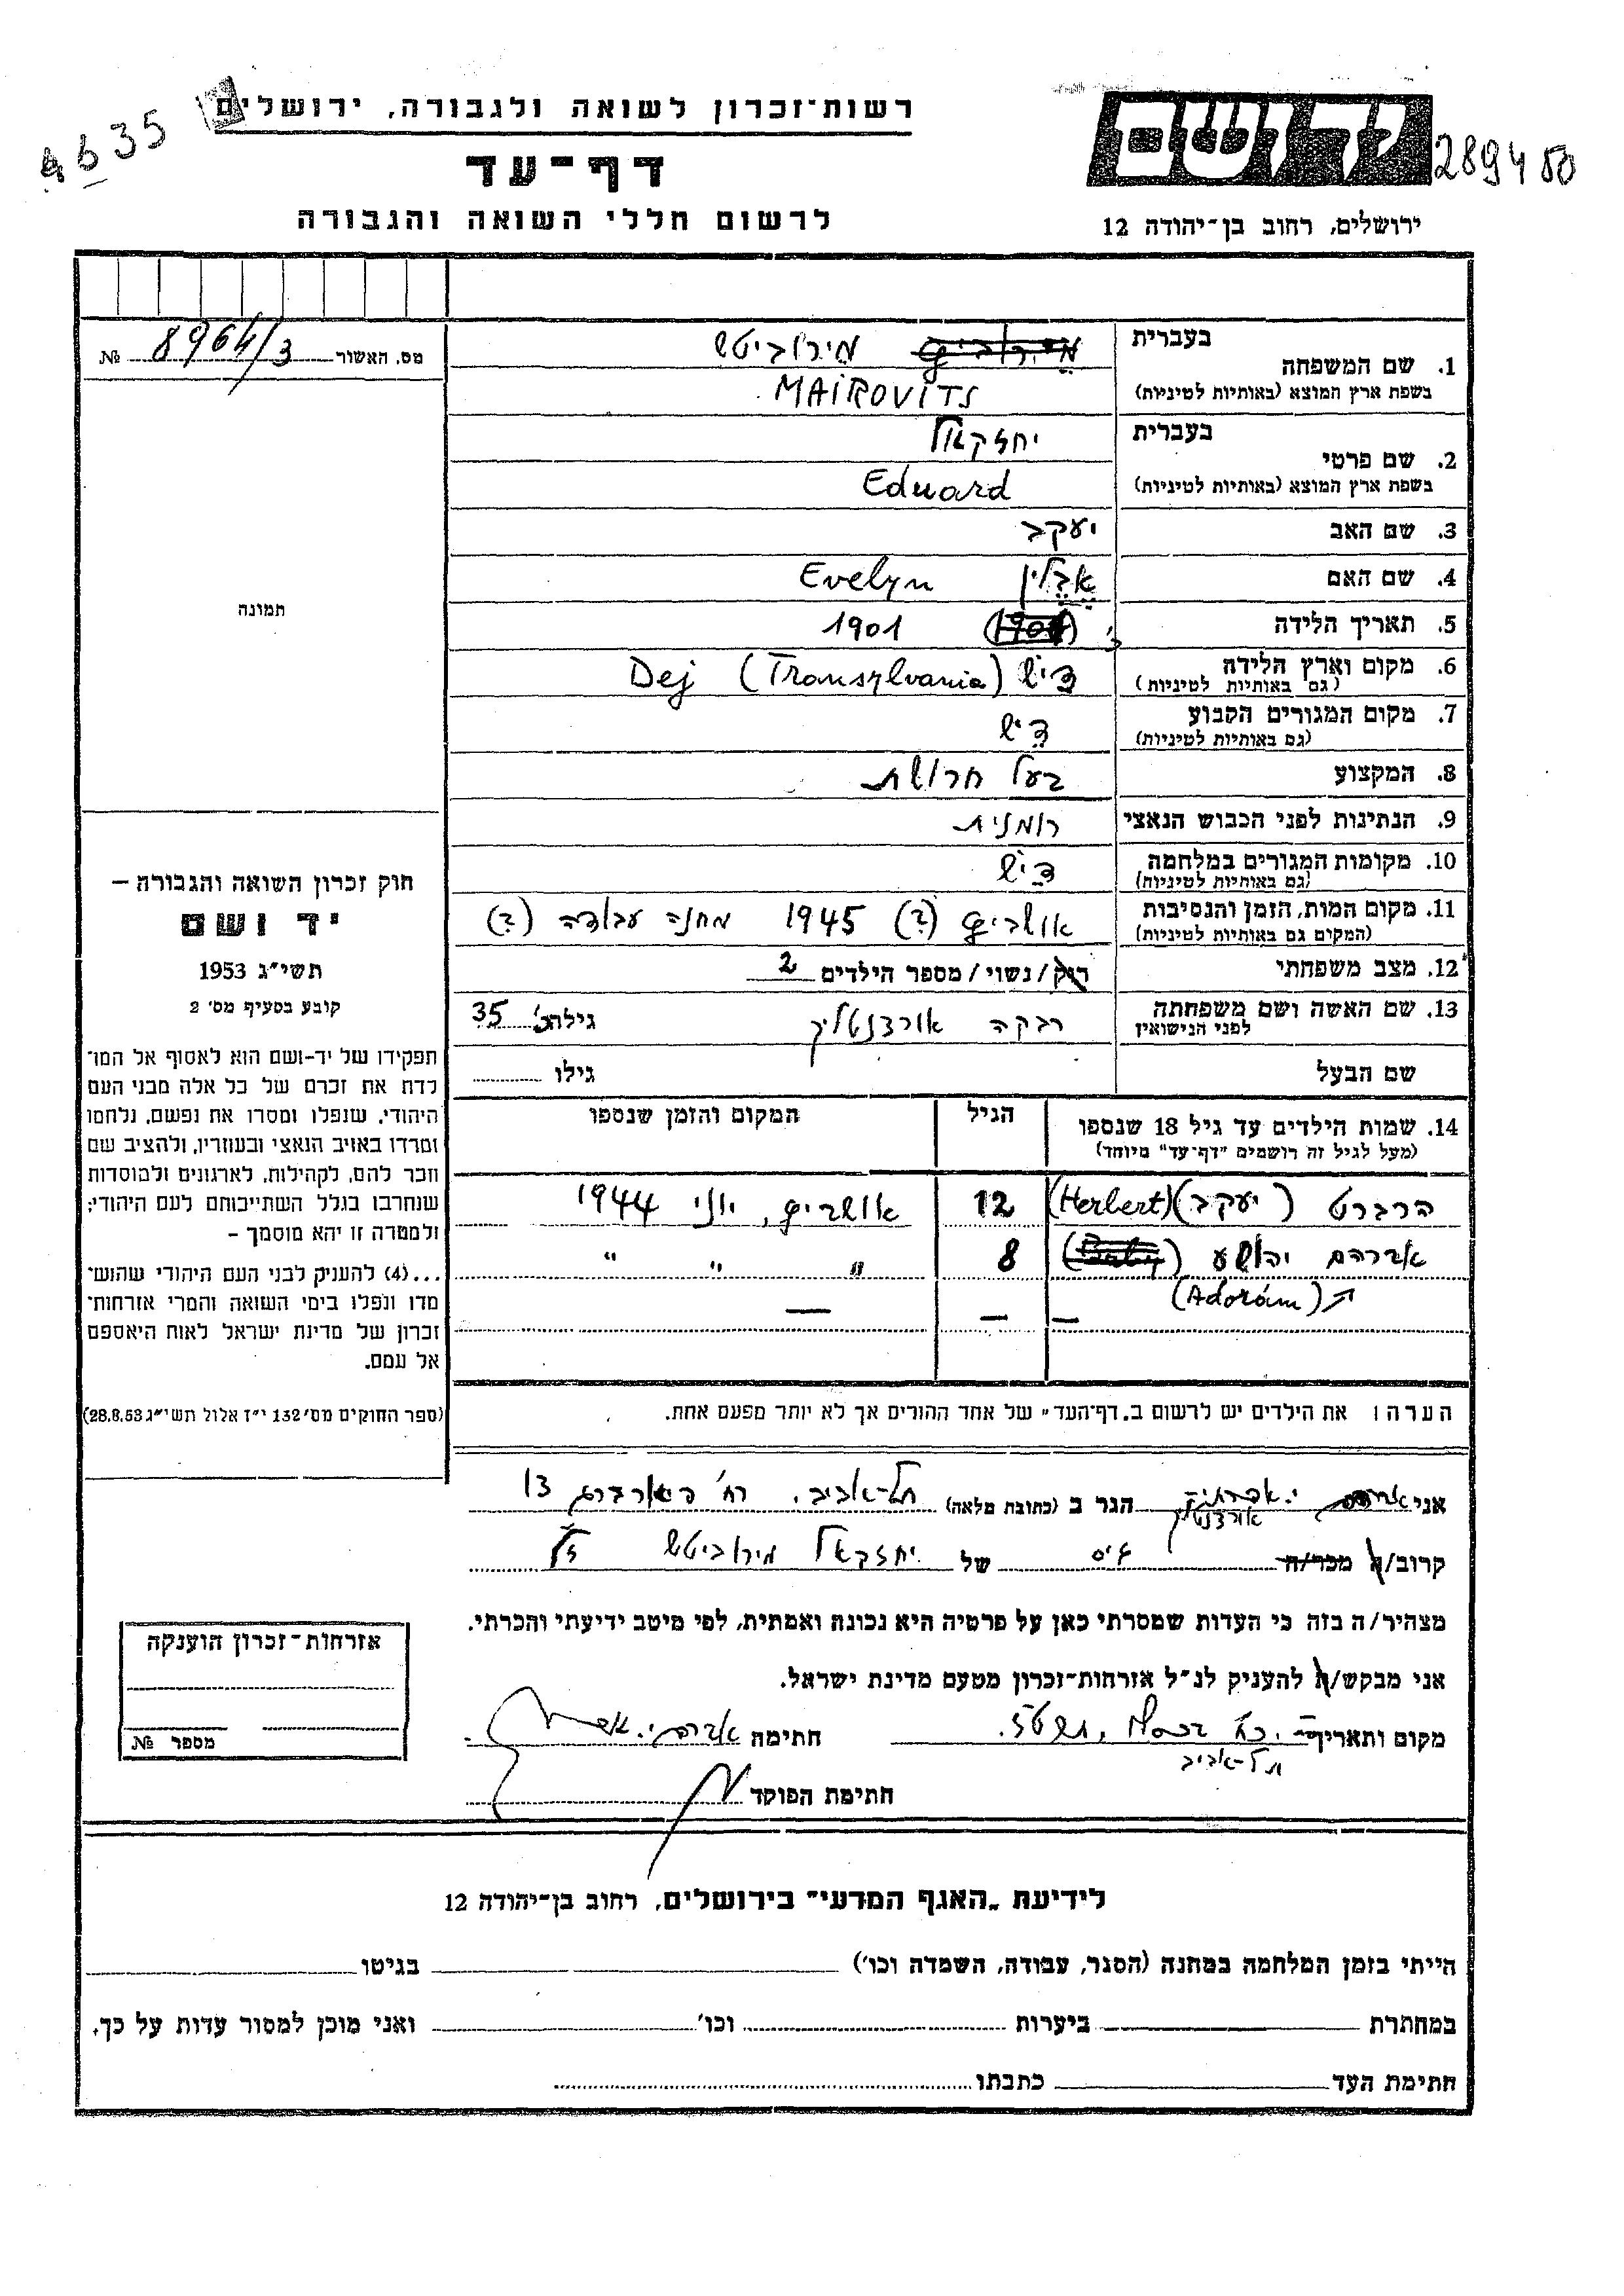 רשות־זכרון לשואה ולגבורה, ירושלים
4635
דף־עד
לרשום חללי השואה והגבורה
יד ושם
289480
ירושלים, רחוב בן־יהודה 12
מס. האשור 8964/3 №
תמונה
חוק זכרון השואה והגבורה –
יד ושם
תשי״ג 1953
קובע בסעיף מס׳ 2
תפקידו של יד-ושם הוא לאסוף אל המו־
לדת את זכרם של כל אלה מבני העם
היהודי, שנפלו ומסרו את נפשם, נלחמו
ומרדו באויב הנאצי ובעוזריו, ולהציב שם
וזכר להם, לקהילות, לארגונים ולמוסדות
שנחרבו בגלל השתייכותם לעם היהודי;
ולמטרה זו יהא מוסמך –
...(4) להעניק לבני העם היהודי שהוש־
מדו ונפלו בימי השואה והמרי אזרחות־
זכרון של מדינת ישראל לאות היאספם
אל עמם.
(ספר החוקים מס׳ 132 י״ז אלול תשי״ג 28.8.53)
1. שם המשפחה בעברית מירוביטש
בשפת ארץ המוצא (באותיות לטיניות) MAIROVITS
2. שם פרטי בעברית יחזקאל
בשפת ארץ המוצא (באותיות לטיניות) Eduard
3. שם האב יעקב
4. שם האם אבלין Evelyn
5. תאריך הלידה 1901
6. מקום וארץ הלידה דיש Dej (Transylvania)
(גם באותיות לטיניות)
7. מקום המגורים הקבוע דיש
(גם באותיות לטיניות)
8. המקצוע בעל חרושת
9. הנתינות לפני הכבוש הנאצי רומנית
10. מקומות המגורים במלחמה דיש
(גם באותיות לטיניות)
11. מקום המות, הזמן והנסיבות אושביץ (?) 1945 מחנה עבודה (?)
(המקום גם באותיות לטיניות)
12. מצב משפחתי רוק/נשוי/מספר הילדים 2
13. שם האשה ושם משפחתה רבקה אורדנטליך גילה 35
לפני הנישואין
שם הבעל גילו
14. שמות הילדים עד גיל 18 שנספו הגיל המקום והזמן שנספו
(מעל לגיל זה רושמים ״דף־עד״ מיוחד)
הרברט (יעקב) (Herbert) 12 אושביץ, יוני 1944
אברהם יהושע 8 " " "
(Adorám)
הערה: את הילדים יש לרשום ב„דף־העד״ של אחד ההורים אך לא יותר מפעם אחת.
אני אורדנטליך הגר ב (כתובת מלאה) תל-אביב, רח׳ 13
קרוב/ה מכר/ה גיס של יחזקאל מירוביטש ז״ל
מצהיר/ה בזה כי העדות שמסרתי כאן על פרטיה היא נכונה ואמתית, לפי מיטב ידיעתי והכרתי.
אני מבקש/ת להעניק לנ״ל אזרחות־זכרון מטעם מדינת ישראל.
מקום ותאריך חתימה
תל-אביב
חתימת הפוקד
אזרחות־זכרון הוענקה
מספר №
לידיעת „האגף המדעי״ בירושלים, רחוב בן־יהודה 12
הייתי בזמן המלחמה במחנה (הסגר, עבודה, השמדה וכו׳) בגיטו
במחתרת ביערות וכו׳ ואני מוכן למסור עדות על כך.
חתימת העד כתבתו